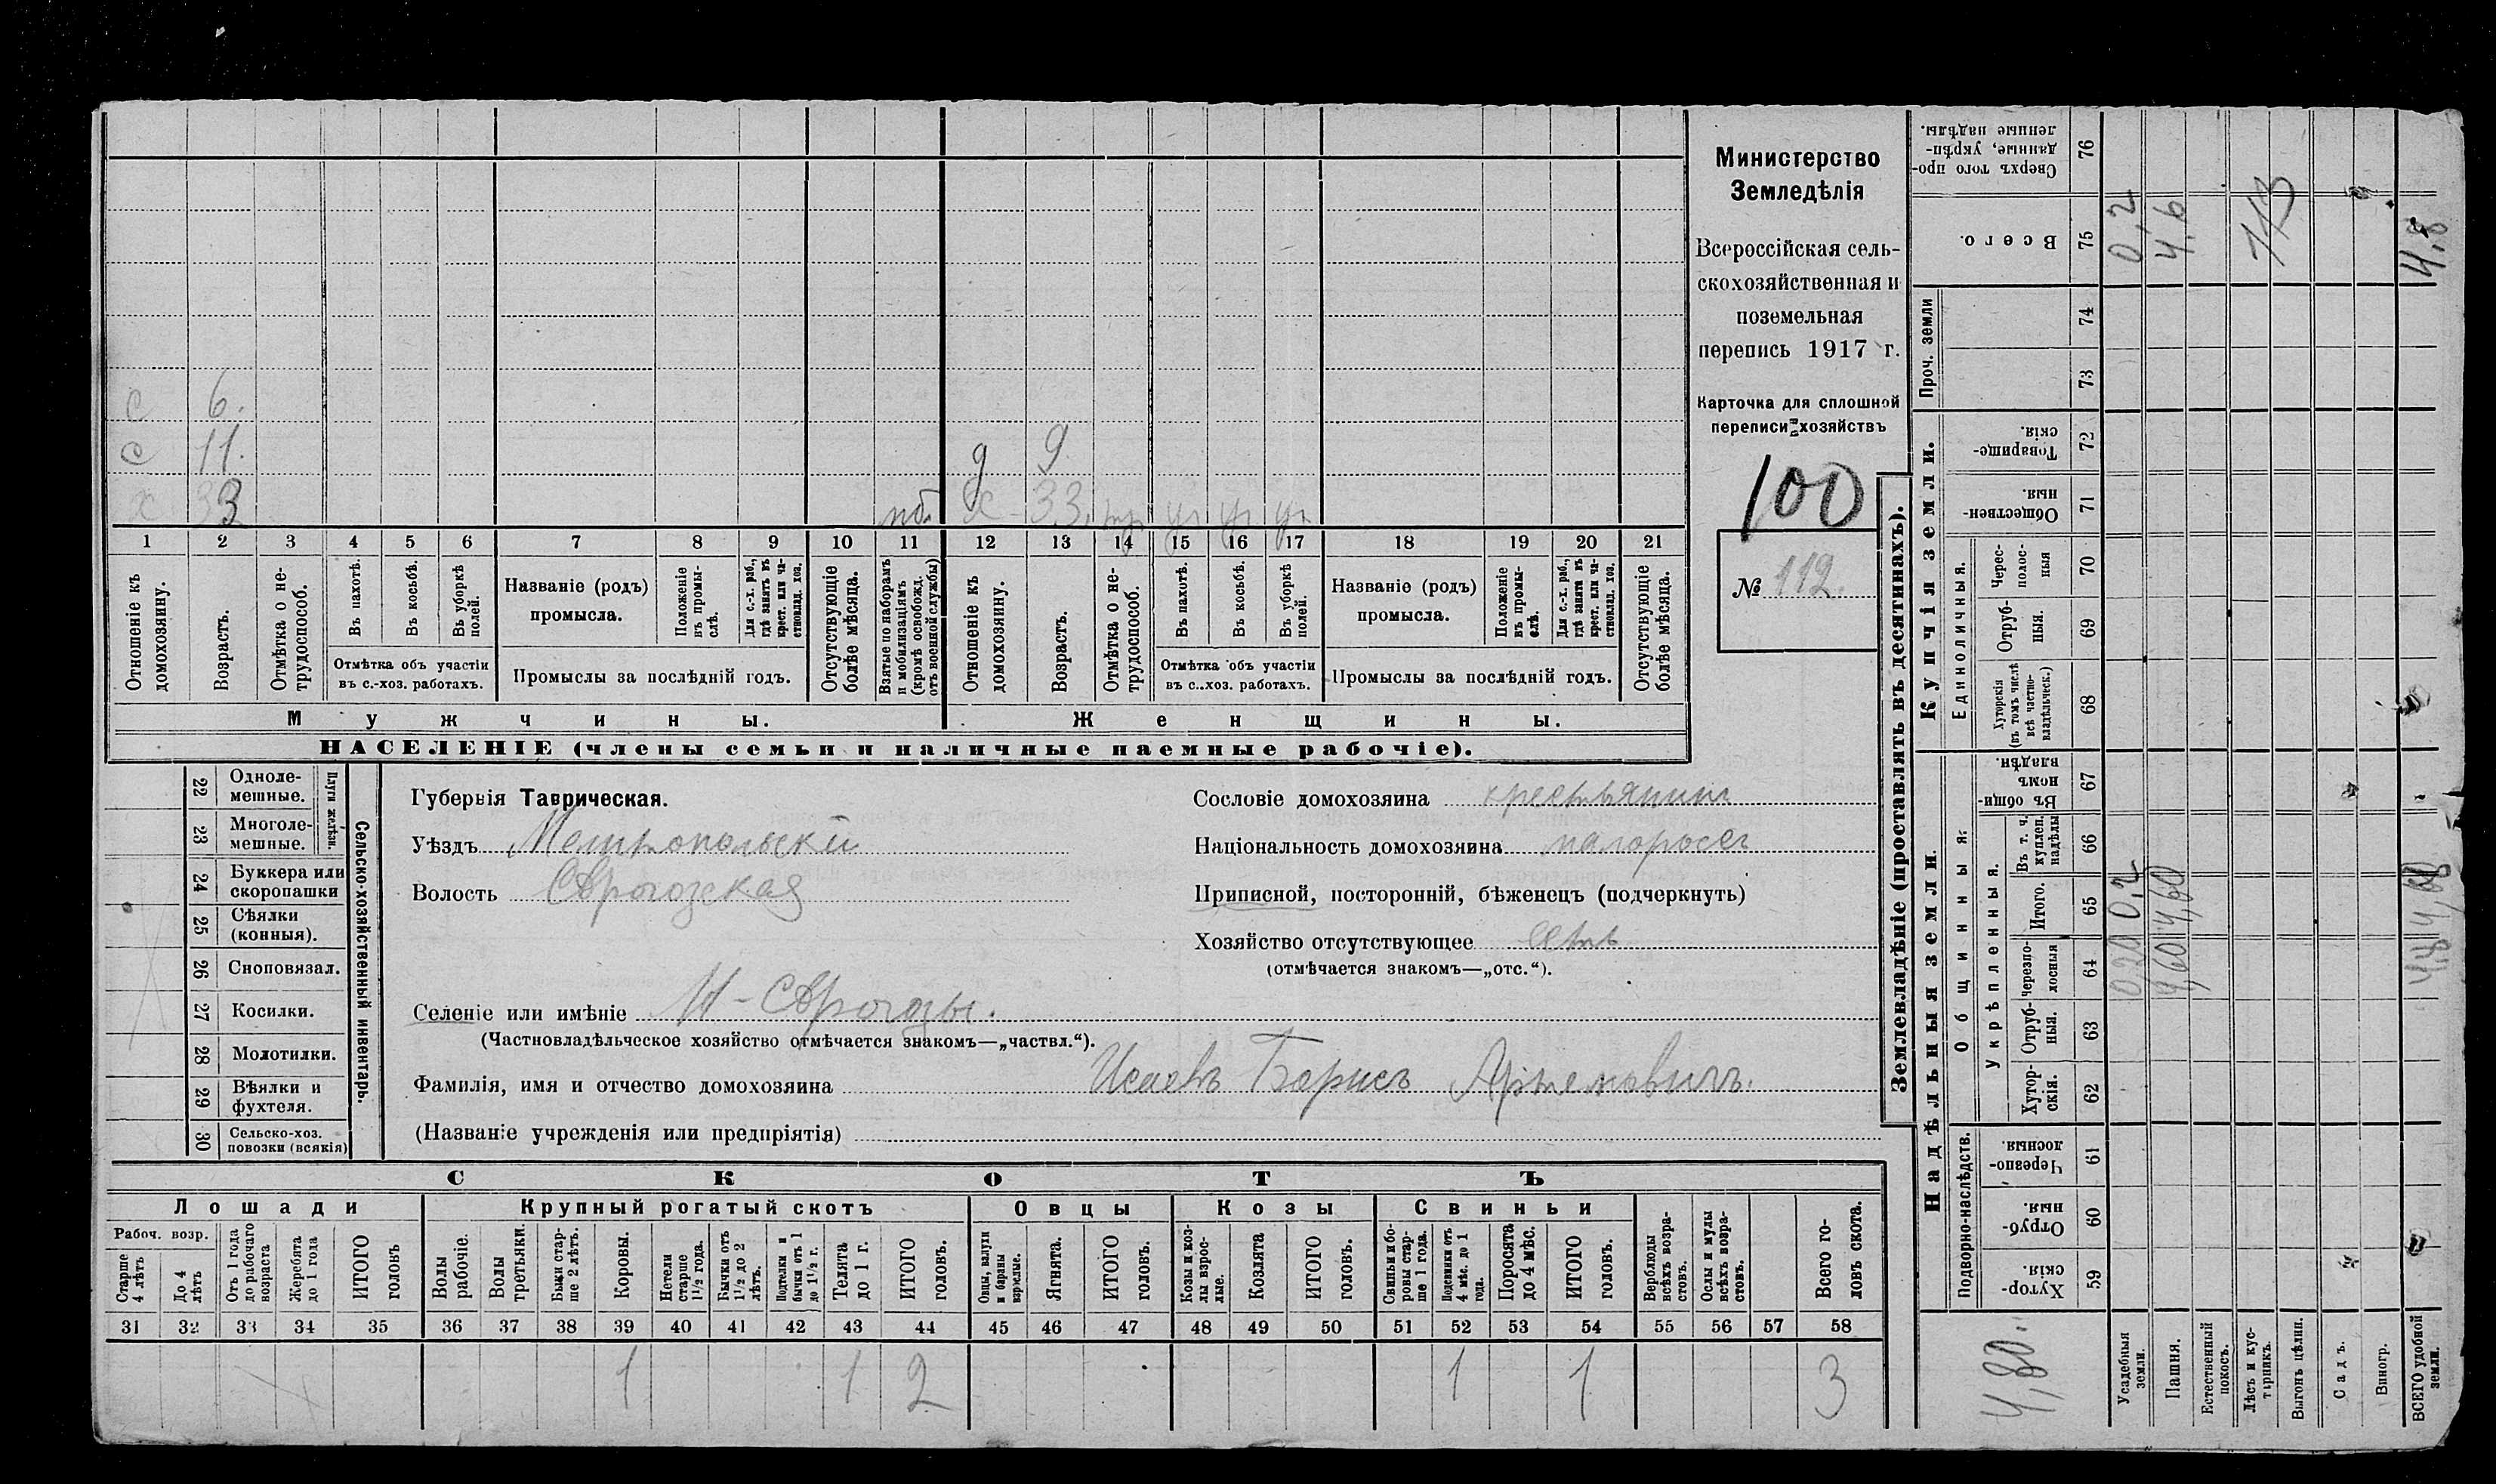 с 6.
с 11. д 9
х 33 мб. х 33. тр уч уч уч
1 2 3 4 5 6 7 8 9 10 11 12 13 14 15 16 17 18 19 20 21
Отношеніе къ домохозяину.
Возрастъ.
Отмѣтка о не-
трудоспособ.
Въ пахотѣ.
Въ косьбѣ.
Въ уборкѣ полей.
Отмѣтка объ участіи
въ с.-хоз. работахъ.
Названіе (родъ)
промысла.
Положеніе въ промы-
слѣ.
Для с.-х. раб.,
гдѣ занятъ въ
крест. или ча-
стновлад. хоз.
Промыслы за послѣдній годъ.
Отсутствующіе
болѣе мѣсяца.
Взятые по наборамъ
и мобилизаціямъ
(кромѣ освобожд.
отъ военной службы)
Отношеніе къ домохозяину.
Возрастъ.
Отмѣтка о не-
трудоспособ.
Въ пахотѣ.
Въ косьбѣ.
Въ уборкѣ полей.
Отмѣтка объ участіи
въ с.-хоз. работахъ.
Названіе (родъ)
промысла.
Положеніе въ промы-
слѣ.
Для с.-х. раб.,
гдѣ занятъ въ
крест. или ча-
стновлад. хоз.
Промыслы за послѣдній годъ.
Отсутствующіе
болѣе мѣсяца.
Мужчины. Женщины.
НАСЕЛЕНІЕ (члены семьи и наличные наемные рабочіе).
Министерство
Земледѣлія
Всероссійская сель-
скохозяйственная и
поземельная
перепись 1917 г.
Карточка для сплошной
переписи хозяйствъ
100
№ 112.
Сельско-хозяйственный инвентарь.
Плуги желѣзн.
22 Одноле-
мешные.
23 Многоле-
мешные.
24 Буккера или
скоропашки
25 Сѣялки
(конныя).
26 Сноповязал.
27 Косилки.
28 Молотилки.
29 Вѣялки и
фухтеля.
30 Сельско-хоз.
повозки (всякія)
Губернія Таврическая.
Уѣздъ Мелитопольскій
Волость Сѣрогозская
Сословіе домохозяина крестьянин
Національность домохозяина малоросс
Приписной, посторонній, бѣженецъ (подчеркнуть)
Хозяйство отсутствующее
(отмѣчается знакомъ—„отс.“).
Селеніе или имѣніе Н-Сѣрогозы.
(Частновладѣльческое хозяйство отмѣчается знакомъ—„частвл.“).
Фамилія, имя и отчество домохозяина Исаевъ Борисъ Артемовичъ.
(Названіе учрежденія или предпріятія)
СКОТЪ
Лошади Крупный рогатый скотъ Овцы Козы Свиньи
Рабоч. возр.
Старше
4 лѣтъ
До 4
лѣтъ
Отъ 1 года
до рабочаго
возраста
Жеребята
до 1 года
ИТОГО
головъ
Волы
рабочіе.
Волы
третьяки.
Быки стар-
ше 2 лѣтъ.
Коровы.
Нетели
старше
1½ года.
Бычки отъ
1½ до 2
лѣтъ.
Подтелки и
бычки отъ 1
до 1½ г.
Телята
до 1 г.
ИТОГО
головъ.
Овцы, валухи
и бараны
взрослые.
Ягнята.
ИТОГО
головъ.
Козы и коз-
лы взрос-
лые.
Козлята
ИТОГО
головъ.
Свиньи и бо-
ровы стар-
ше 1 года.
Подсвинки отъ
4 мѣс. до 1
года.
Поросята
до 4 мѣс.
ИТОГО
головъ.
Верблюды
всѣхъ возра-
стовъ.
Ослы и мулы
всѣхъ возра-
стовъ.
Всего го-
ловъ скота.
31 32 33 34 35 36 37 38 39 40 41 42 43 44 45 46 47 48 49 50 51 52 53 54 55 56 57 58
1 1 2 1 1 3
Землевладѣніе (проставлять въ десятинахъ).
Купчія земли.
Надѣльныя земли
Сверхъ того про-
данные, укрѣп-
ленные надѣлы.
76
Всего.
75
Проч. земли
74
73
Товарище-
скія.
72
Обществен-
ныя.
71
Единоличныя.
Черес-
полос-
ныя
70
Отруб-
ныя.
69
Хуторскія
(въ томъ числѣ
всѣ частно-
владѣльческ.)
68
Общинныя:
Въ общи-
номъ
владѣн.
67
Укрѣпленныя.
Въ т. ч.
куплен.
надѣлы
66
Итого.
65
Черезпо-
лосныя
64
Отруб-
ныя.
63
Хутор-
скія.
62
Подворно-наслѣдств.
Черезпо-
лосныя
61
Отруб-
ныя.
60
Хутор-
скія.
59
4,80.
Усадебныя
земли.
0,20 0,2 0,2
Пашня.
4,60 4,60 4,6
Естественный
покосъ.
Лѣсъ и кус-
тарникъ.
Выгонъ цѣлин.
Садъ.
Виногр.
ВСЕГО удобной
земли.
4,8 4,80 4,8